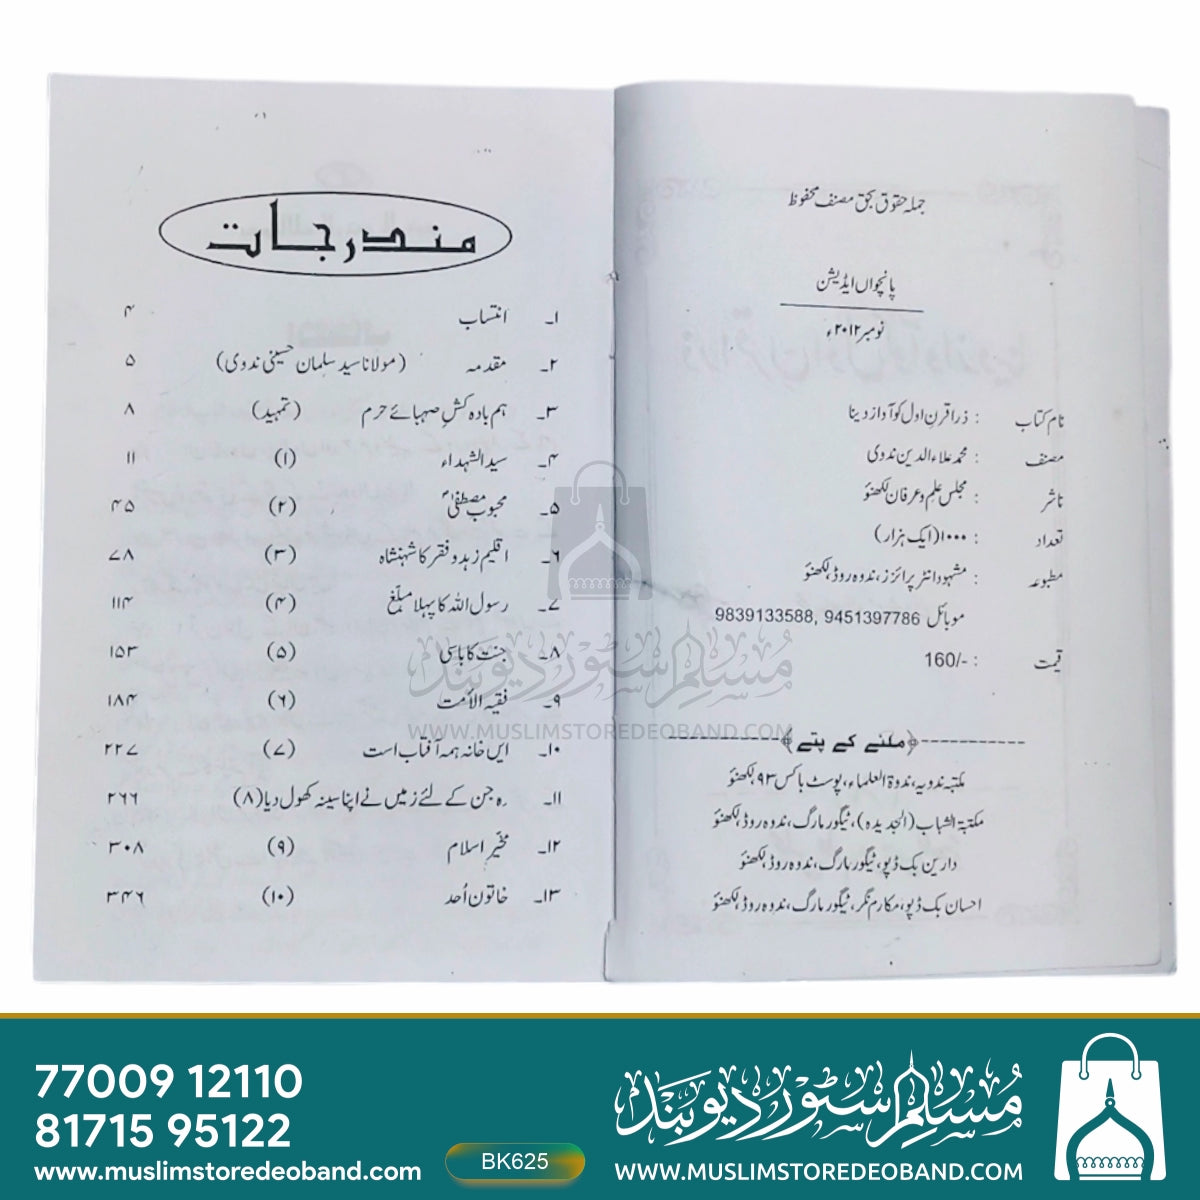 جملہ حقوق بحق مصنف محفوظ
پانچواں ایڈیشن
نومبر ۲۰۱۲ء
نام کتاب : ذرا قرنِ اول کو آواز دینا
مصنف : محمد علاء الدین ندوی
ناشر : مجلس علم و عرفان لکھنؤ
تعداد : ۱۰۰۰ (ایک ہزار)
مطبوعہ : مشہود انٹرپرائزز، ندوہ روڈ، لکھنؤ
موبائل 9839133588, 9451397786
قیمت : 160/-
﴿ملنے کے پتے﴾
مکتبہ ندویہ، ندوۃ العلماء، پوسٹ باکس ۹۳، لکھنؤ
مکتبۃ الشباب (الجدیدہ)، ٹیگور مارگ، ندوہ روڈ، لکھنؤ
دارین بک ڈپو، ٹیگور مارگ، ندوہ روڈ، لکھنؤ
احسان بک ڈپو، مکارم نگر، ٹیگور مارگ، ندوہ روڈ، لکھنؤ
مندرجات
۱۔ انتساب ۴
۲۔ مقدمہ (مولانا سید سلمان حسینی ندوی) ۵
۳۔ ہم بادہ کشِ صہبائے حرم (تمہید) ۸
۴۔ سید الشہداء (۱) ۱۱
۵۔ محبوب مصطفیٰؐ (۲) ۴۵
۶۔ اقلیم زہد و فقر کا شہنشاہ (۳) ۷۸
۷۔ رسول اللہ کا پہلا مبلغ (۴) ۱۱۴
۸۔ جنت کا باسی (۵) ۱۵۳
۹۔ فقیہ الأمت (۶) ۱۸۴
۱۰۔ ایں خانہ ہمہ آفتاب است (۷) ۲۲۷
۱۱۔ وہ جن کے لئے زمیں نے اپنا سینہ کھول دیا (۸) ۲۶۶
۱۲۔ مخیّرِ اسلام (۹) ۳۰۸
۱۳۔ خاتون اُحد (۱۰) ۳۴۶
مسلم سٹور دیوبند
WWW.MUSLIMSTOREDEOBAND.COM
77009 12110
81715 95122
www.muslimstoredeoband.com
BK625
مسلم سٹور دیوبند
WWW.MUSLIMSTOREDEOBAND.COM